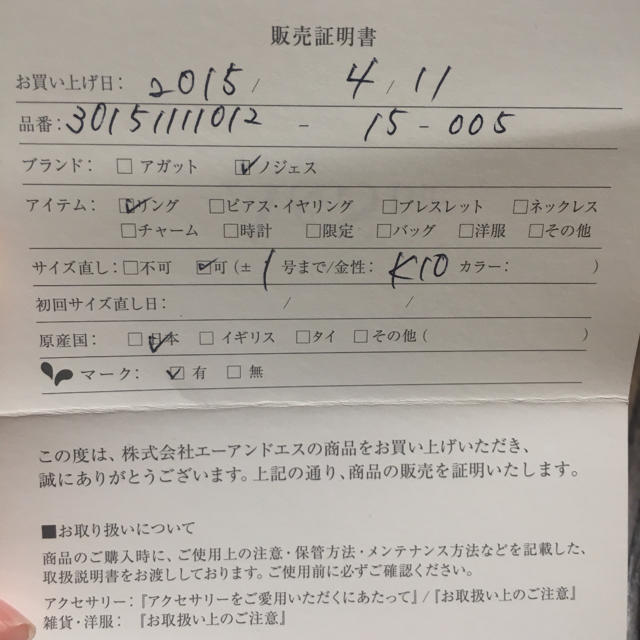 販売証明書
お買い上げ日: 2015 / 4 / 11
品番: 30151111012 - 15 - 005
ブランド: □ アガット ☑ ノジェス
アイテム: ☑リング □ピアス・イヤリング □ブレスレット □ネックレス
□チャーム □時計 □限定 □バッグ □洋服 □その他
サイズ直し: □不可 ☑可 (± 1 号まで/金性: K10 カラー: )
初回サイズ直し日: / /
原産国: ☑日本 □イギリス □タイ □その他 ( )
マーク: ☑ 有 □ 無
この度は、株式会社エーアンドエスの商品をお買い上げいただき、
誠にありがとうございます。上記の通り、商品の販売を証明いたします。
■お取り扱いについて
商品のご購入時に、ご使用上の注意・保管方法・メンテナンス方法などを記載した、
取扱説明書をお渡ししております。ご使用前に必ずご確認ください。
アクセサリー:『アクセサリーをご愛用いただくにあたって』/『お取扱い上のご注意』
雑貨・洋服: 『お取扱い上のご注意』